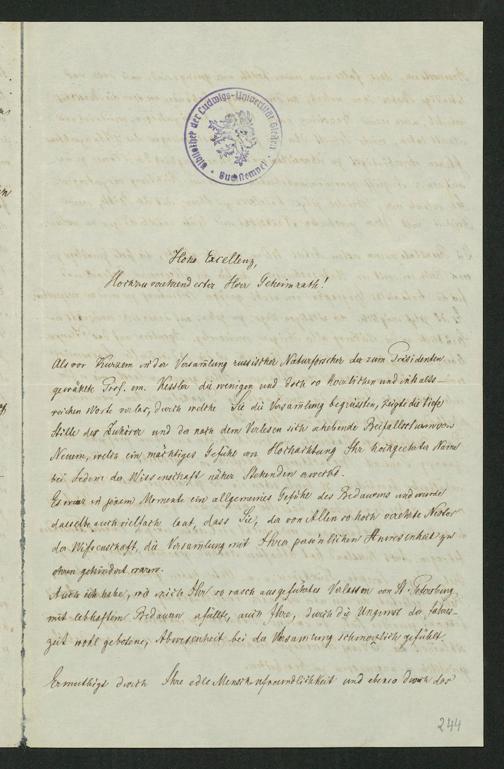 Bibliothek der Ludwigs-Universität Giessen
Hohe Excellenz,
Hochzuverehrendster Herr Geheimrath!
Als vor Kurzem in der Versamlung russischer Naturforscher der zum Präsidenten
gewählte Prof. em. Kessler die wenigen und doch so herzlichen und inhalts-
reichen Worte vorlas, durch welche Sie die Versamlung begrüssten, zeigte die tiefe
Stille der Zuhörer und der nach dem Verlesen sich erhebende Beifallssturm von
Neuem, welch ein mächtiges Gefühl von Hochachtung Ihr hochgeehrter Name
bei Jedem der Wissenschaft näher Stehenden erweckt.
Es war in jenem Momente ein allgemeines Gefühl des Bedauerns und wurde
dasselbe auch vielfach laut, dass Sie, der von Allen so hoch verehrte Nestor
der Wissenschaft, die Versamlung mit Ihrer persönlichen Anwesenheit zu
ehren gehindert waren.
Auch ich habe, wie mich Ihr so rasch ausgeführtes Verlassen von St. Petersburg
mit lebhaftem Bedauern erfüllte, auch Ihre, durch die Ungunst der Jahres-
zeit wohl gebotene, Abwesenheit bei der Versamlung schmerzlich gefühlt.
Ermuthigt durch Ihre edle Menschenfreundlichkeit und ebenso durch der
244